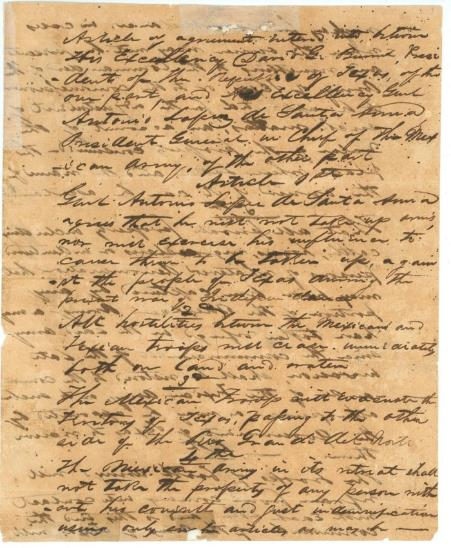 Article of agreement entered into between
His Excellency David G. Burnet, Presi
dent of the Republic of Texas, of the
one part, and His Excellency Genl
Antonio Lopez de Santa Anna
President General in Chief of the Mex
ican Army, of the other part
Article 1st
Genl Antonio Lopez de Santa Anna
agrees that he will not take up arms,
nor will exercise his influence to
cause them to be taken up again
st the people of Texas during the
present war of
2
All hostilities between the Mexican and
Texian troops will cease immediately
both on land and water
3
The Mexican Troops will evacuate the
Territory of Texas, passing to the other
side of the Rio Grande del Norte
4
The Mexican Army in its retreat shall
not take the property of any person with
out his consent and just indemnification
using only such articles as may be